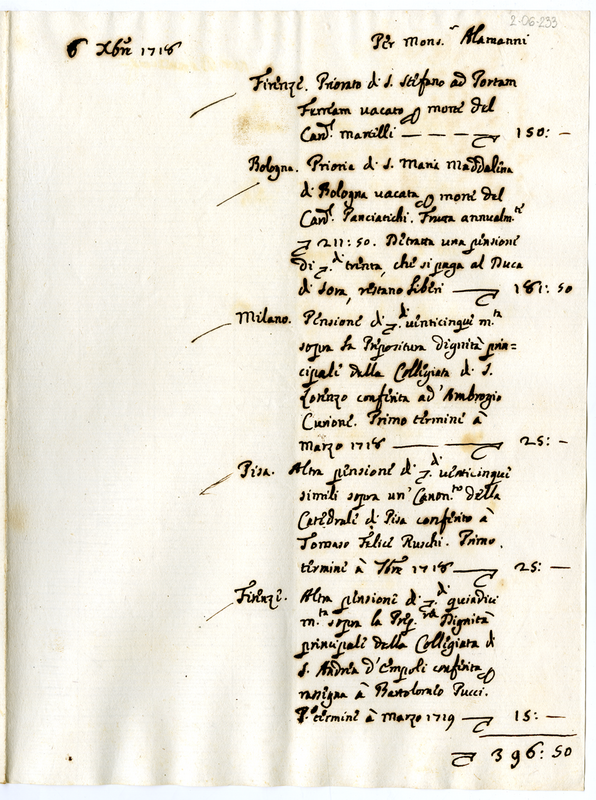 2-06-233
6 Xbre 1718
Per Mons.r Alamanni
Firenze. Priorato di S. Stefano ad Portam
Ferream vacato morte del
Card. Martelli — — — 150: —
Bologna. Prioria di S. Maria Maddalena
di Bologna vacata morte del
Card. Panciatichi. Frutta annualm.te
211: 50. Detratta una pensione
di trenta, che si paga al Duca
di Sora, restano liberi — 181: 50
Milano. Pensione di venticinque m.ta
sopra la Prepositura dignità prin=
cipale della Collegiata di S.
Lorenzo conferita ad' Ambrogio
Curione. Primo termine à
Marzo 1718 — 25: —
Pisa. Altra pensione di venticinque
simili sopra un' Canon.to della
Catedrale di Pisa conferito à
Tomaso Felice Ruschi. Primo
termine à 7bre 1718 — 25: —
Firenze. Altra pensione di quindici
m.ta sopra la Prep.ra Dignità
principale della Collegiata di
S. Andrea d'Empoli conferita
rasegna à Bartolomeo Pucci.
P.o termine à Marzo 1719 — 15: —
396: 50